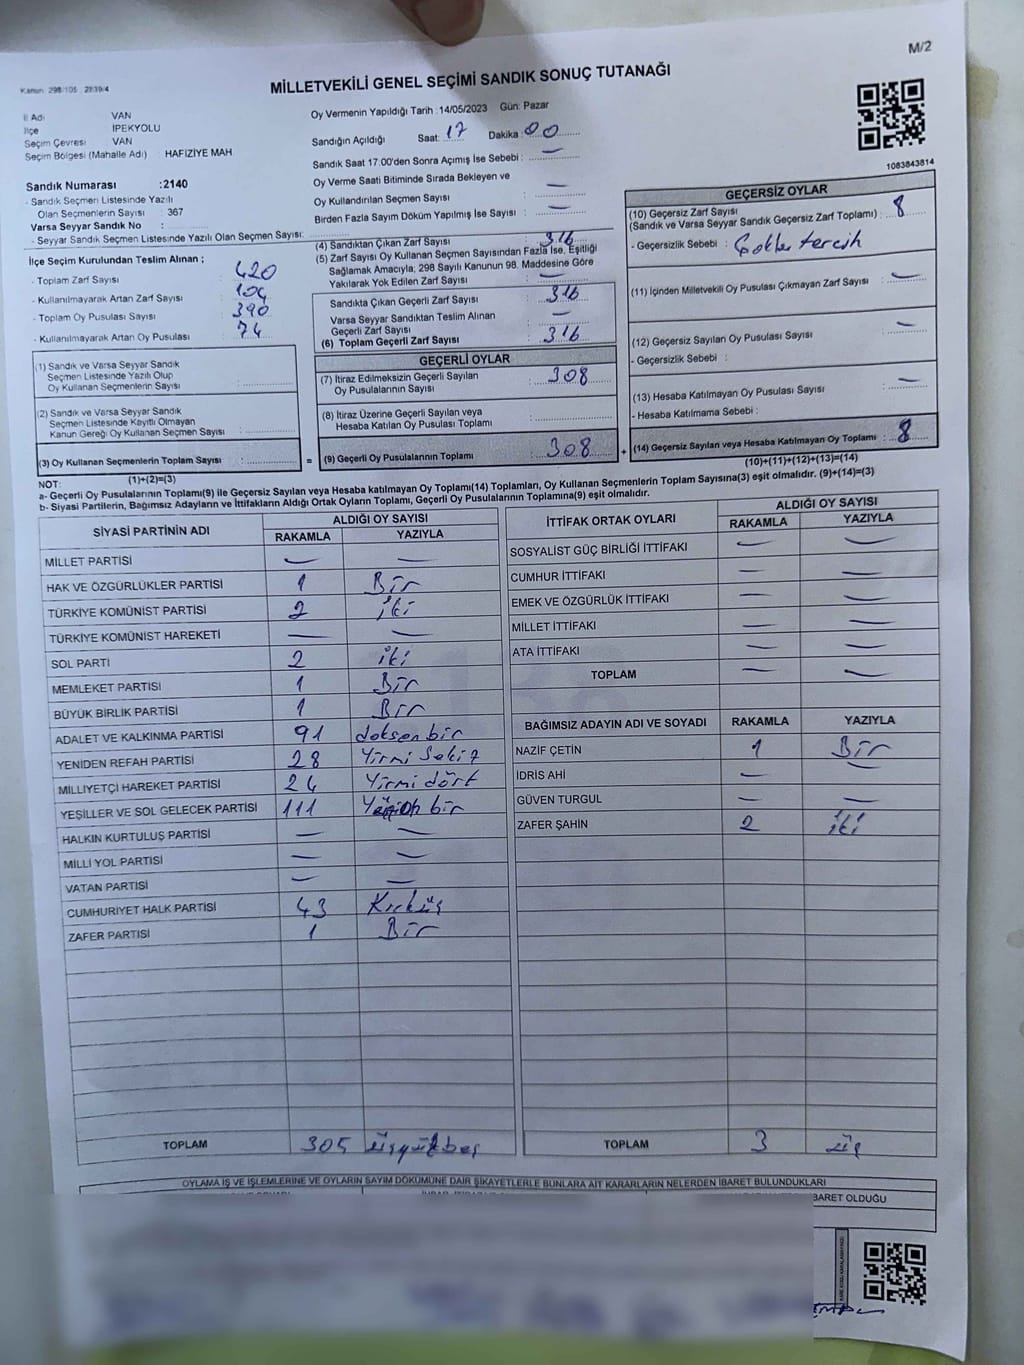 M/2
Kanun 298/105 2839/4
MİLLETVEKİLİ GENEL SEÇİMİ SANDIK SONUÇ TUTANAĞI
İl Adı VAN
İlçe İPEKYOLU
Seçim Çevresi VAN
Seçim Bölgesi (Mahalle Adı) HAFIZİYE MAH
Sandık Numarası :2140
- Sandık Seçmen Listesinde Yazılı
Olan Seçmenlerin Sayısı : 367
Varsa Seyyar Sandık No :
- Seyyar Sandık Seçmen Listesinde Yazılı Olan Seçmen Sayısı:
İlçe Seçim Kurulundan Teslim Alınan ;
- Toplam Zarf Sayısı 420
- Kullanılmayarak Artan Zarf Sayısı 104
- Toplam Oy Pusulası Sayısı 390
- Kullanılmayarak Artan Oy Pusulası 74
(1) Sandık ve Varsa Seyyar Sandık
Seçmen Listesinde Yazılı Olup
Oy Kullanan Seçmenlerin Sayısı :
(2) Sandık ve Varsa Seyyar Sandık
Seçmen Listesinde Kayıtlı Olmayan
Kanun Gereği Oy Kullanan Seçmen Sayısı :
(3) Oy Kullanan Seçmenlerin Toplam Sayısı : =
(1)+(2)=(3)
Oy Vermenin Yapıldığı Tarih :14/05/2023 Gün: Pazar
Sandığın Açıldığı Saat: 17 Dakika: 00
Sandık Saat 17:00'den Sonra Açımış İse Sebebi : —
Oy Verme Saati Bitiminde Sırada Bekleyen ve
Oy Kullandırılan Seçmen Sayısı : —
Birden Fazla Sayım Döküm Yapılmış İse Sayısı : —
(4) Sandıktan Çıkan Zarf Sayısı : 316
(5) Zarf Sayısı Oy Kullanan Seçmen Sayısından Fazla İse, Eşitliği
Sağlamak Amacıyla; 298 Sayılı Kanunun 98. Maddesine Göre
Yakılarak Yok Edilen Zarf Sayısı : —
Sandıkta Çıkan Geçerli Zarf Sayısı : 316
Varsa Seyyar Sandıktan Teslim Alınan
Geçerli Zarf Sayısı : —
(6) Toplam Geçerli Zarf Sayısı : 316
GEÇERLİ OYLAR
(7) İtiraz Edilmeksizin Geçerli Sayılan
Oy Pusulalarının Sayısı : 308
(8) İtiraz Üzerine Geçerli Sayılan veya
Hesaba Katılan Oy Pusulası Toplamı :
(9) Geçerli Oy Pusulalarının Toplamı : 308 +
1083843814
GEÇERSİZ OYLAR
(10) Geçersiz Zarf Sayısı
(Sandık ve Varsa Seyyar Sandık Geçersiz Zarf Toplamı) : 8
- Geçersizlik Sebebi : Çoklu tercih
(11) İçinden Milletvekili Oy Pusulası Çıkmayan Zarf Sayısı : —
(12) Geçersiz Sayılan Oy Pusulası Sayısı : —
- Geçersizlik Sebebi :
(13) Hesaba Katılmayan Oy Pusulası Sayısı : —
- Hesaba Katılmama Sebebi :
(14) Geçersiz Sayılan veya Hesaba Katılmayan Oy Toplamı : 8
(10)+(11)+(12)+(13)=(14)
NOT:
a- Geçerli Oy Pusulalarının Toplamı(9) ile Geçersiz Sayılan veya Hesaba katılmayan Oy Toplamı(14) Toplamları, Oy Kullanan Seçmenlerin Toplam Sayısına(3) eşit olmalıdır. (9)+(14)=(3)
b- Siyasi Partilerin, Bağımsız Adayların ve İttifakların Aldığı Ortak Oyların Toplamı, Geçerli Oy Pusulalarının Toplamına(9) eşit olmalıdır.
SİYASİ PARTİNİN ADI ALDIĞI OY SAYISI
RAKAMLA YAZIYLA
MİLLET PARTİSİ — —
HAK VE ÖZGÜRLÜKLER PARTİSİ 1 Bir
TÜRKİYE KOMÜNİST PARTİSİ 2 iki
TÜRKİYE KOMÜNİST HAREKETİ — —
SOL PARTİ 2 iki
MEMLEKET PARTİSİ 1 Bir
BÜYÜK BİRLİK PARTİSİ 1 Bir
ADALET VE KALKINMA PARTİSİ 91 doksan bir
YENİDEN REFAH PARTİSİ 28 Yirmi Sekiz
MİLLİYETÇİ HAREKET PARTİSİ 24 Yirmi dört
YEŞİLLER VE SOL GELECEK PARTİSİ 111 Yüzon bir
HALKIN KURTULUŞ PARTİSİ — —
MİLLİ YOL PARTİSİ — —
VATAN PARTİSİ — —
CUMHURİYET HALK PARTİSİ 43 Kırküç
ZAFER PARTİSİ 1 Bir
TOPLAM 305 üçyüzbeş
İTTİFAK ORTAK OYLARI ALDIĞI OY SAYISI
RAKAMLA YAZIYLA
SOSYALİST GÜÇ BİRLİĞİ İTTİFAKI — —
CUMHUR İTTİFAKI — —
EMEK VE ÖZGÜRLÜK İTTİFAKI — —
MİLLET İTTİFAKI — —
ATA İTTİFAKI — —
TOPLAM — —
BAĞIMSIZ ADAYIN ADI VE SOYADI RAKAMLA YAZIYLA
NAZİF ÇETİN 1 Bir
İDRİS AHİ — —
GÜVEN TURGUL — —
ZAFER ŞAHİN 2 iki
TOPLAM 3 üç
OYLAMA İŞ VE İŞLEMLERİNE VE OYLARIN SAYIM DÖKÜMÜNE DAİR ŞİKAYETLERLE BUNLARA AİT KARARLARIN NELERDEN İBARET BULUNDUKLARI
BARET OLDUĞU